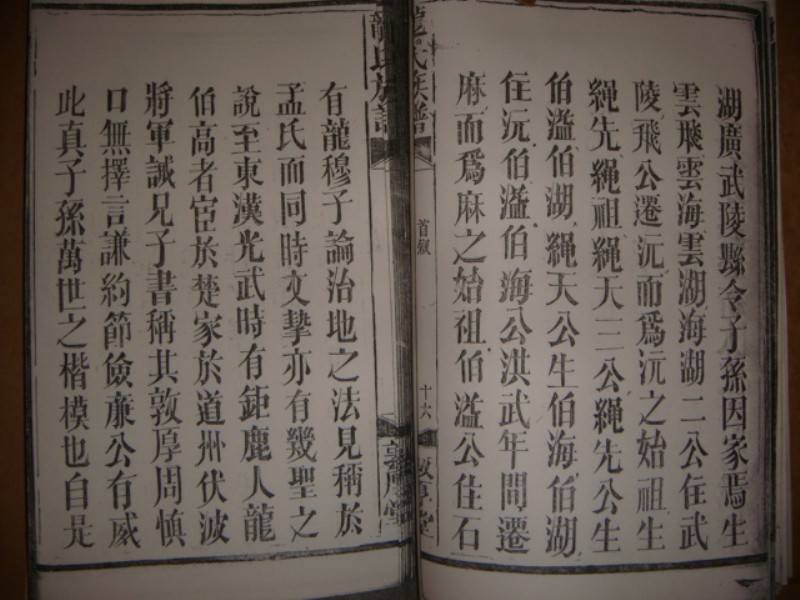 湖廣武陵縣令子孫因家焉生
雲飛雲海雲湖海湖二公住武
陵飛公遷沅而爲沅之始祖生
繩先繩祖繩天三公繩先公生
伯溢伯湖繩天公生伯海伯湖
住沅伯溢伯海公洪武年間遷
麻而爲麻之始祖伯溢公住石
龍氏族譜
首叙
十六
敦厚堂
龍氏族譜
敦厚堂
有龍穆子論治地之法見稱於
孟氏而同時文摯亦有幾聖之
說至東漢光武時有鉅鹿人龍
伯高者宦於楚家於道州伏波
將軍誡兄子書稱其敦厚周慎
口無擇言謙約節儉亷公有威
此真子孫萬世之楷模也自是